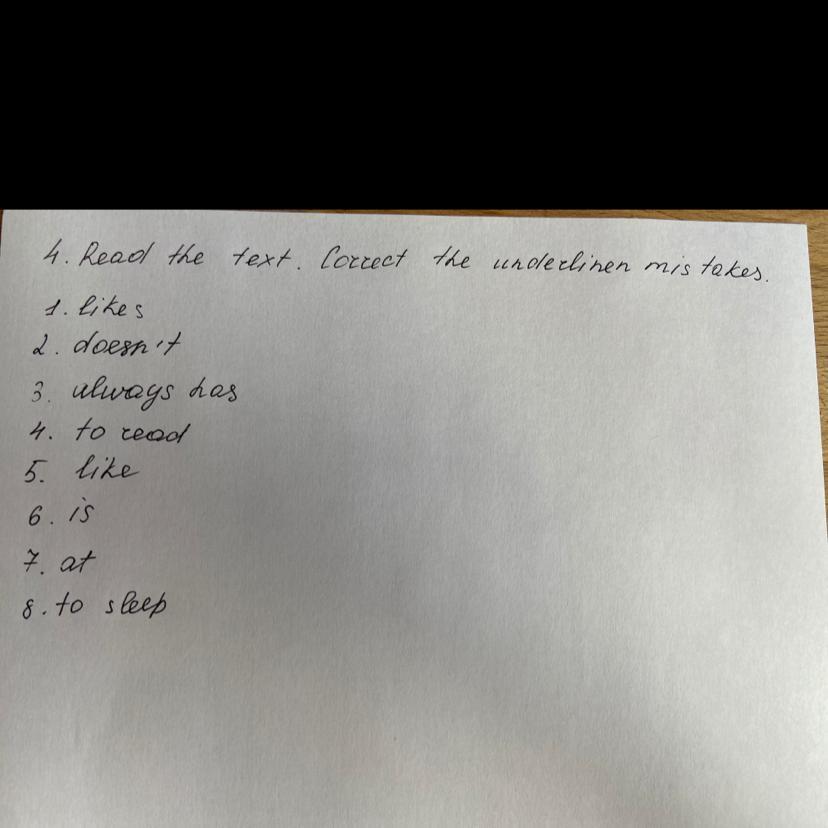 4. Read the text. Correct the underlinen mistakes.
1. likes
2. doesn't
3. always has
4. to read
5. like
6. is
7. at
8. to sleep